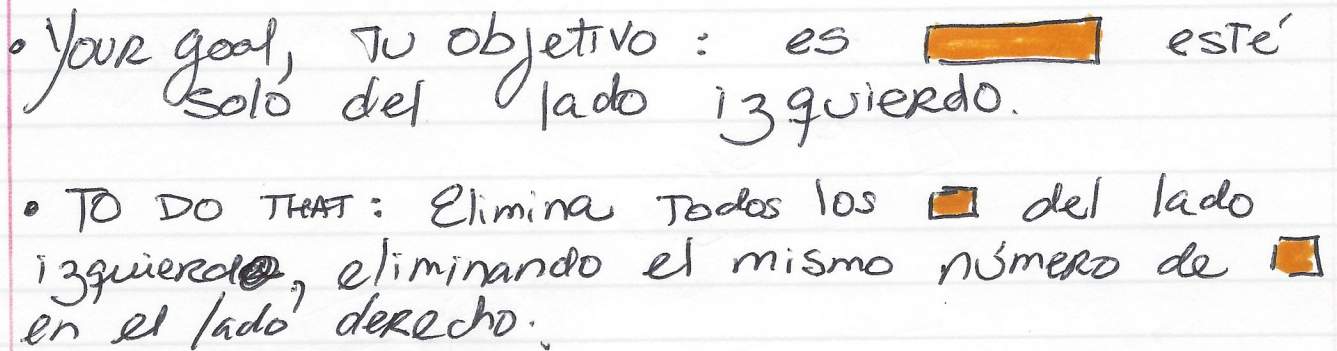 • Your goal, Tu objetivo : es esté
solo del lado izquierdo.
• TO DO THAT : Elimina Todos los del lado
izquierdo, eliminando el mismo número de
en el lado derecho.